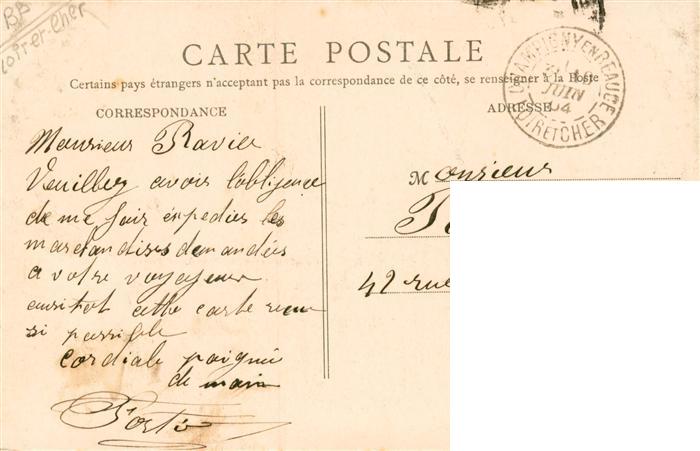 BB
Loir et Cher
CARTE POSTALE
Certains pays étrangers n'acceptant pas la correspondance de ce côté, se renseigner à la Poste
CORRESPONDANCE
Monsieur Ravier
Veuillez avoir l'obligence
de me fair expedier les
marchandises demandées
a votre voyageur
ausitot cette carte recu
si possible
Cordiale poignée
de main
ADRESSE
CHAMPIGNY EN BEAUCE
JUIN
04
LOIR ET CHER
Monsieur
42 rue